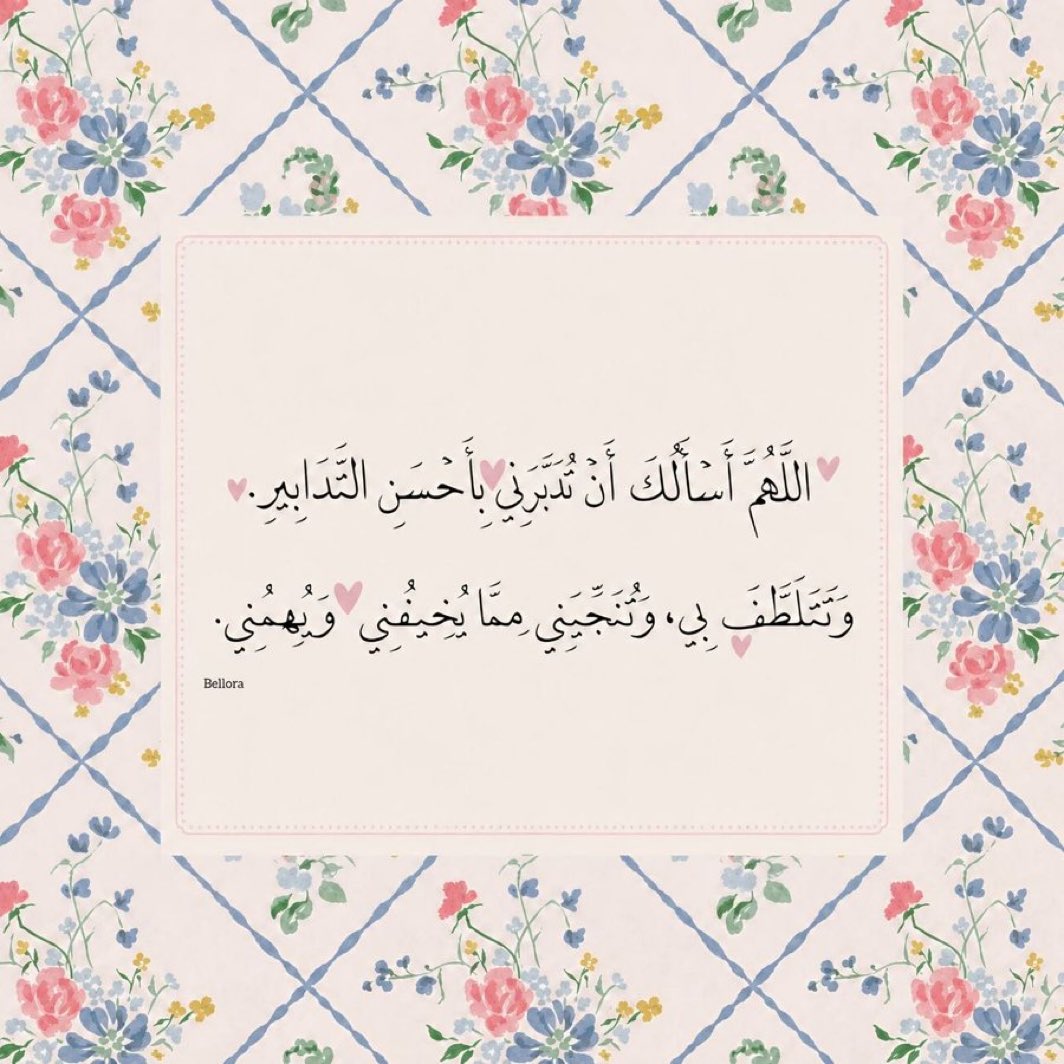 اللَّهُمَّ أَسْأَلُكَ أَنْ تُدَبَّرَنِي بِأَحْسَنِ التَّدَابِيرِ.
وَتَتَلَطَّفَ بِي، وَتُنَجِّيَنِي مِمَّا يُخِيفُنِي وَيُهِمُنِي.
Bellora